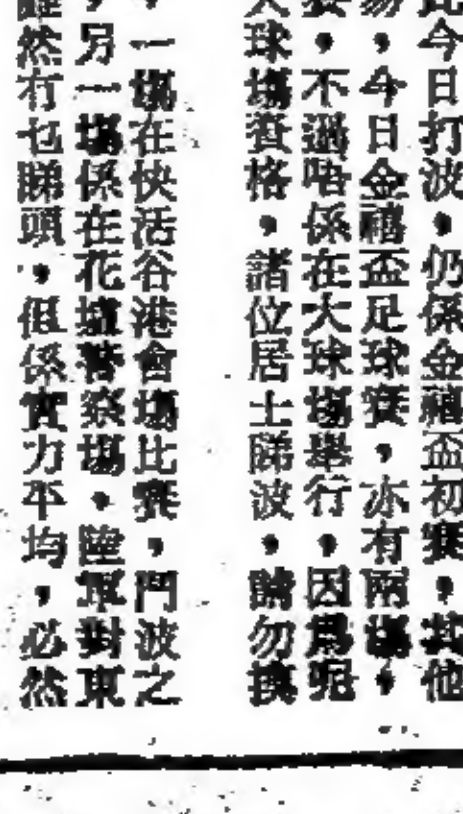 此今日打波，仍係金禧盃初賽，其他
場，今日金禧盃足球賽，亦有兩場，
賽，不過唔係在大球場舉行，因爲呢
大球場賽格，諸位居士睇波，請勿摸
，一場在快活谷港會場比賽，鬥波之
，另一場係在花墟警察場，陸軍對東
雖然冇乜睇頭，但係實力平均，必然